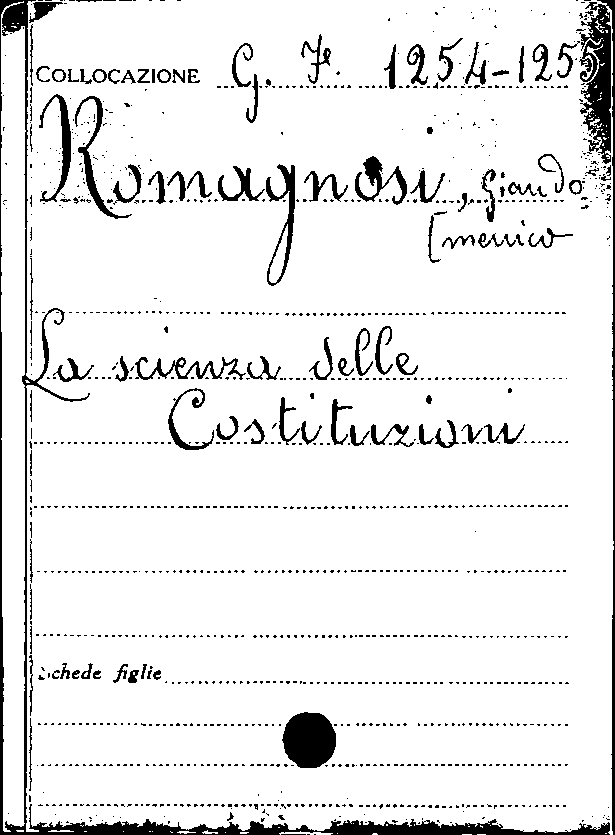 COLLOCAZIONE G. Fe. 1254-1255
Romagnosi, Giando-
[menico
La scienza delle
Costituzioni
Schede figlie